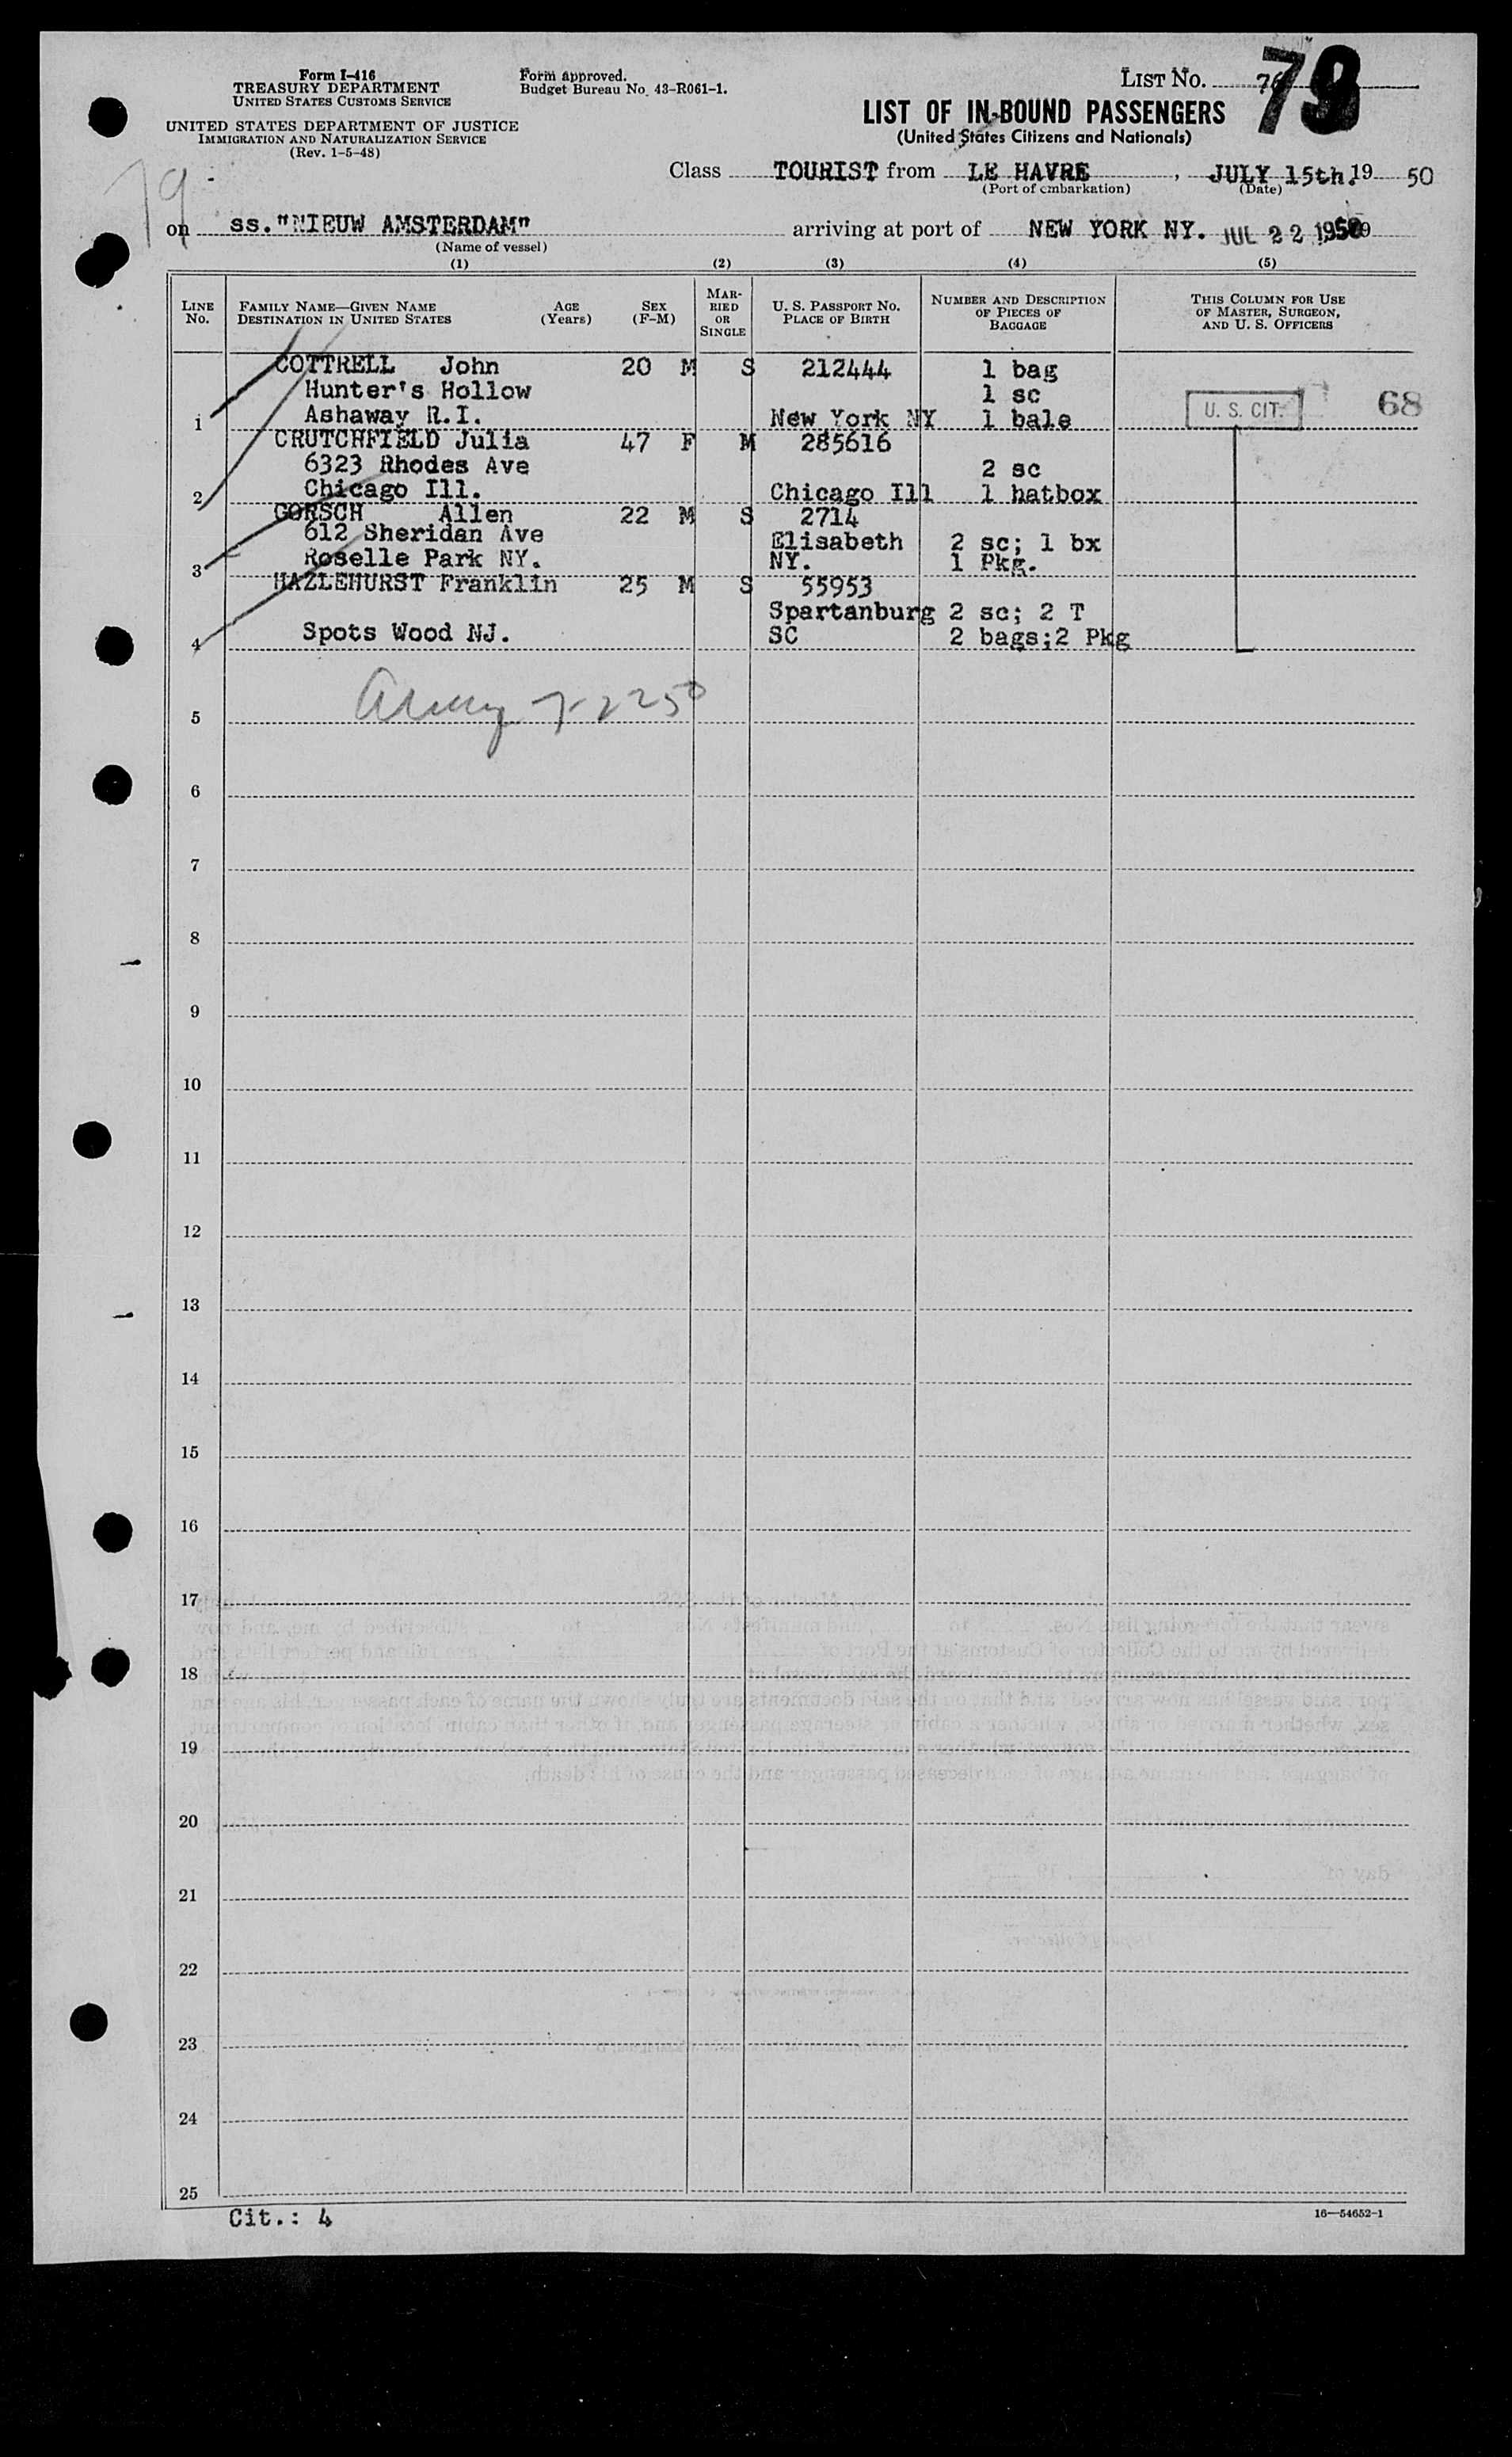 Form I-416
TREASURY DEPARTMENT
UNITED STATES CUSTOMS SERVICE
UNITED STATES DEPARTMENT OF JUSTICE
IMMIGRATION AND NATURALIZATION SERVICE
(Rev. 1-5-48)
Form approved.
Budget Bureau No. 43-R061-1.
LIST No.
79
LIST OF IN-BOUND PASSENGERS
(United States Citizens and Nationals)
Class TOURIST from LE HAVRE, JULY 15th. 19 50
(Port of embarkation) (Date)
79
on ss. "NIEUW AMSTERDAM" arriving at port of NEW YORK NY. JUL 22 1950
(Name of vessel)
(1) (2) (3) (4) (5)
LINE No. FAMILY NAME—GIVEN NAME DESTINATION IN UNITED STATES AGE (Years) SEX (F-M) MARRIED OR SINGLE U. S. PASSPORT No. PLACE OF BIRTH NUMBER AND DESCRIPTION OF PIECES OF BAGGAGE THIS COLUMN FOR USE OF MASTER, SURGEON, AND U. S. OFFICERS
COTTRELL John 20 M S 212444 1 bag
Hunter's Hollow 1 sc
1 Ashaway R.I. New York NY 1 bale U. S. CIT. 68
CRUTCHFIELD Julia 47 F M 285616
6323 Rhodes Ave 2 sc
2 Chicago Ill. Chicago Ill 1 hatbox
GORSCH Allen 22 M S 2714
612 Sheridan Ave Elisabeth 2 sc; 1 bx
3 Roselle Park NY. NY. 1 Pkg.
HAZLEHURST Franklin 25 M S 55953
Spartanburg 2 sc; 2 T
4 Spots Wood NJ. SC 2 bags;2 Pkg
5 7-22 50
6
7
8
9
10
11
12
13
14
15
16
17
18
19
20
21
22
23
24
25
Cit.: 4
16—54652-1